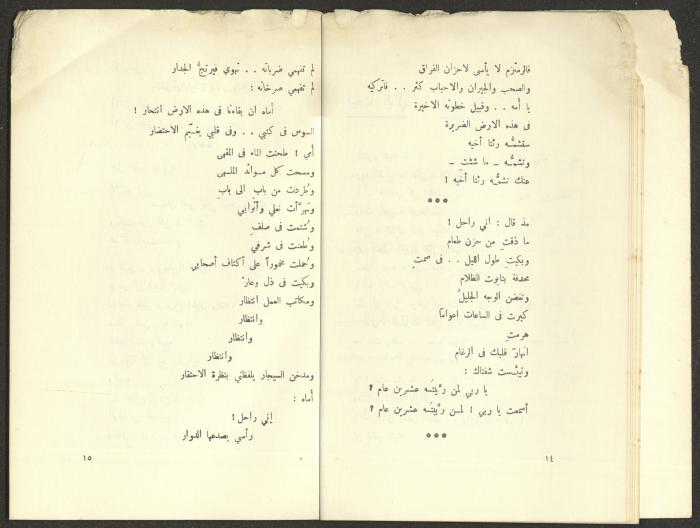 فالرمتزم لا يأسى لاحزان الفراق
والصحب والجيران والاحباب كثر . . فاتركيه
يا أمه . . وقبيل خطوته الاخيرة
فى هذه الارض الضريرة
ستشمّه رئتا أخيه
وتشمّه ـ ما شئت ـ
عنك تشمّه رئتا أخيه !
***
مذ قال : اني راحل !
ما ذقتِ من حزن طعام
وبكيتِ طول الليل . . فى صمتٍ
محدقة بتابوت الظلام
وتغضن الوجه الجليلُ
كبرت فى الساعات اعوامًا
هرمتِ
انهارَ قلبك فى الرغام
وتيبَّست شفتاك :
يا ربي لمن ربَّيتُه عشرين عام ؟
أسمعت يا ربي ! لمن ربَّيتُه عشرين عام ؟
***
١٤
لم تفهمي ضرباته . . تهوي فيرتجُّ الجدار
لم تفهمي صرخاته :
أماه ان بقاءنا فى هذه الارض انتحار !
السوس فى كتبي . . وفى قلبي يغيّم الاحتضار
أمي ! طحنت الماء فى المقهى
ومسحت كل موائد الملهى
وطُردت من بابٍ الى بابِ
وتهرَّأت نعلي وأثوابي
وشُتمت فى صلفٍ
وطُعنت فى شرفي
وحُملت مخموراً على أكتاف أصحابي
وبكيت فى ذل وعارْ
ومكاتب العمل انتظار
وانتظار
وانتظار
وانتظار
ومدخن السيجار يلفظني بنظرة الاحتقار
أماه :
إني راحل !
رأسي يصدعها الدوار
١٥